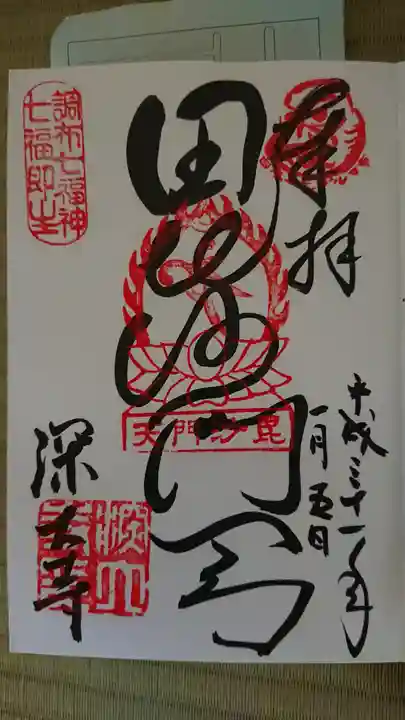 奉拝
平成三十一年
一月五日
毘沙門天
毘沙門天
調布七福神
七福即生
深大寺
深大寺